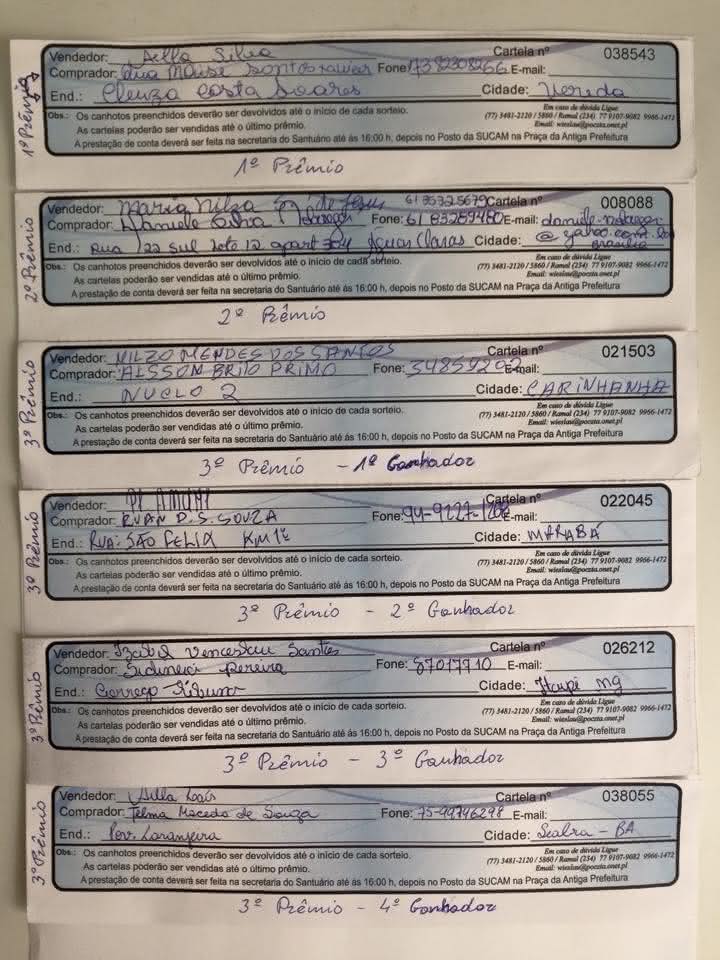 1º Prêmio
Vendedor: Aella Silva Cartela nº 038543
Comprador: Fone: 7382308266 E-mail:
End.: Cleuza Costa Soares Cidade: Vereda
Obs.: Os canhotos preenchidos deverão ser devolvidos até o início de cada sorteio. Em caso de dúvida Ligue
As cartelas poderão ser vendidas até o último prêmio. (77) 3481-2120 / 5860 / Ramal (234) 77 9107-9082 9966-1472
Email: wieslau@poczta.onet.pl
A prestação de conta deverá ser feita na secretaria do Santuário até às 16:00 h, depois no Posto da SUCAM na Praça da Antiga Prefeitura
1º Prêmio
2º Prêmio
Vendedor: Maria Nilza de Jesus Cartela nº 008088
Comprador: Fone: E-mail:
End.: Rua 22 Sul lote 12 apart 304 Águas Claras Cidade: Brasília
Obs.: Os canhotos preenchidos deverão ser devolvidos até o início de cada sorteio. Em caso de dúvida Ligue
As cartelas poderão ser vendidas até o último prêmio. (77) 3481-2120 / 5860 / Ramal (234) 77 9107-9082 9966-1472
Email: wieslau@poczta.onet.pl
A prestação de conta deverá ser feita na secretaria do Santuário até às 16:00 h, depois no Posto da SUCAM na Praça da Antiga Prefeitura
2º Prêmio
3º Prêmio
Vendedor: NILZO MENDES DOS SANTOS Cartela nº 021503
Comprador: ALSSON BRITO PRIMO Fone: 34859202 E-mail:
End.: NUCLO 2 Cidade: CARINHANHA
Obs.: Os canhotos preenchidos deverão ser devolvidos até o início de cada sorteio. Em caso de dúvida Ligue
As cartelas poderão ser vendidas até o último prêmio. (77) 3481-2120 / 5860 / Ramal (234) 77 9107-9082 9966-1472
Email: wieslau@poczta.onet.pl
A prestação de conta deverá ser feita na secretaria do Santuário até às 16:00 h, depois no Posto da SUCAM na Praça da Antiga Prefeitura
3º Prêmio - 1º Ganhador
3º Prêmio
Vendedor: Cartela nº 022045
Comprador: RUAN D. S. SOUZA Fone: E-mail:
End.: RUA: SÃO FELIX Cidade: MARABÁ
Obs.: Os canhotos preenchidos deverão ser devolvidos até o início de cada sorteio. Em caso de dúvida Ligue
As cartelas poderão ser vendidas até o último prêmio. (77) 3481-2120 / 5860 / Ramal (234) 77 9107-9082 9966-1472
Email: wieslau@poczta.onet.pl
A prestação de conta deverá ser feita na secretaria do Santuário até às 16:00 h, depois no Posto da SUCAM na Praça da Antiga Prefeitura
3º Prêmio - 2º Ganhador
3º Prêmio
Vendedor: Izabel Venceslau Santos Cartela nº 026212
Comprador: Sidinei Pereira Fone: 87017710 E-mail:
End.: Corrego Cidade: MG
Obs.: Os canhotos preenchidos deverão ser devolvidos até o início de cada sorteio. Em caso de dúvida Ligue
As cartelas poderão ser vendidas até o último prêmio. (77) 3481-2120 / 5860 / Ramal (234) 77 9107-9082 9966-1472
Email: wieslau@poczta.onet.pl
A prestação de conta deverá ser feita na secretaria do Santuário até às 16:00 h, depois no Posto da SUCAM na Praça da Antiga Prefeitura
3º Prêmio - 3º Ganhador
3º Prêmio
Vendedor: Cartela nº 038055
Comprador: Telma Macedo de Souza Fone: 75-99746298 E-mail:
End.: Pov. Laranjeira Cidade: Seabra - BA
Obs.: Os canhotos preenchidos deverão ser devolvidos até o início de cada sorteio. Em caso de dúvida Ligue
As cartelas poderão ser vendidas até o último prêmio. (77) 3481-2120 / 5860 / Ramal (234) 77 9107-9082 9966-1472
Email: wieslau@poczta.onet.pl
A prestação de conta deverá ser feita na secretaria do Santuário até às 16:00 h, depois no Posto da SUCAM na Praça da Antiga Prefeitura
3º Prêmio - 4º Ganhador